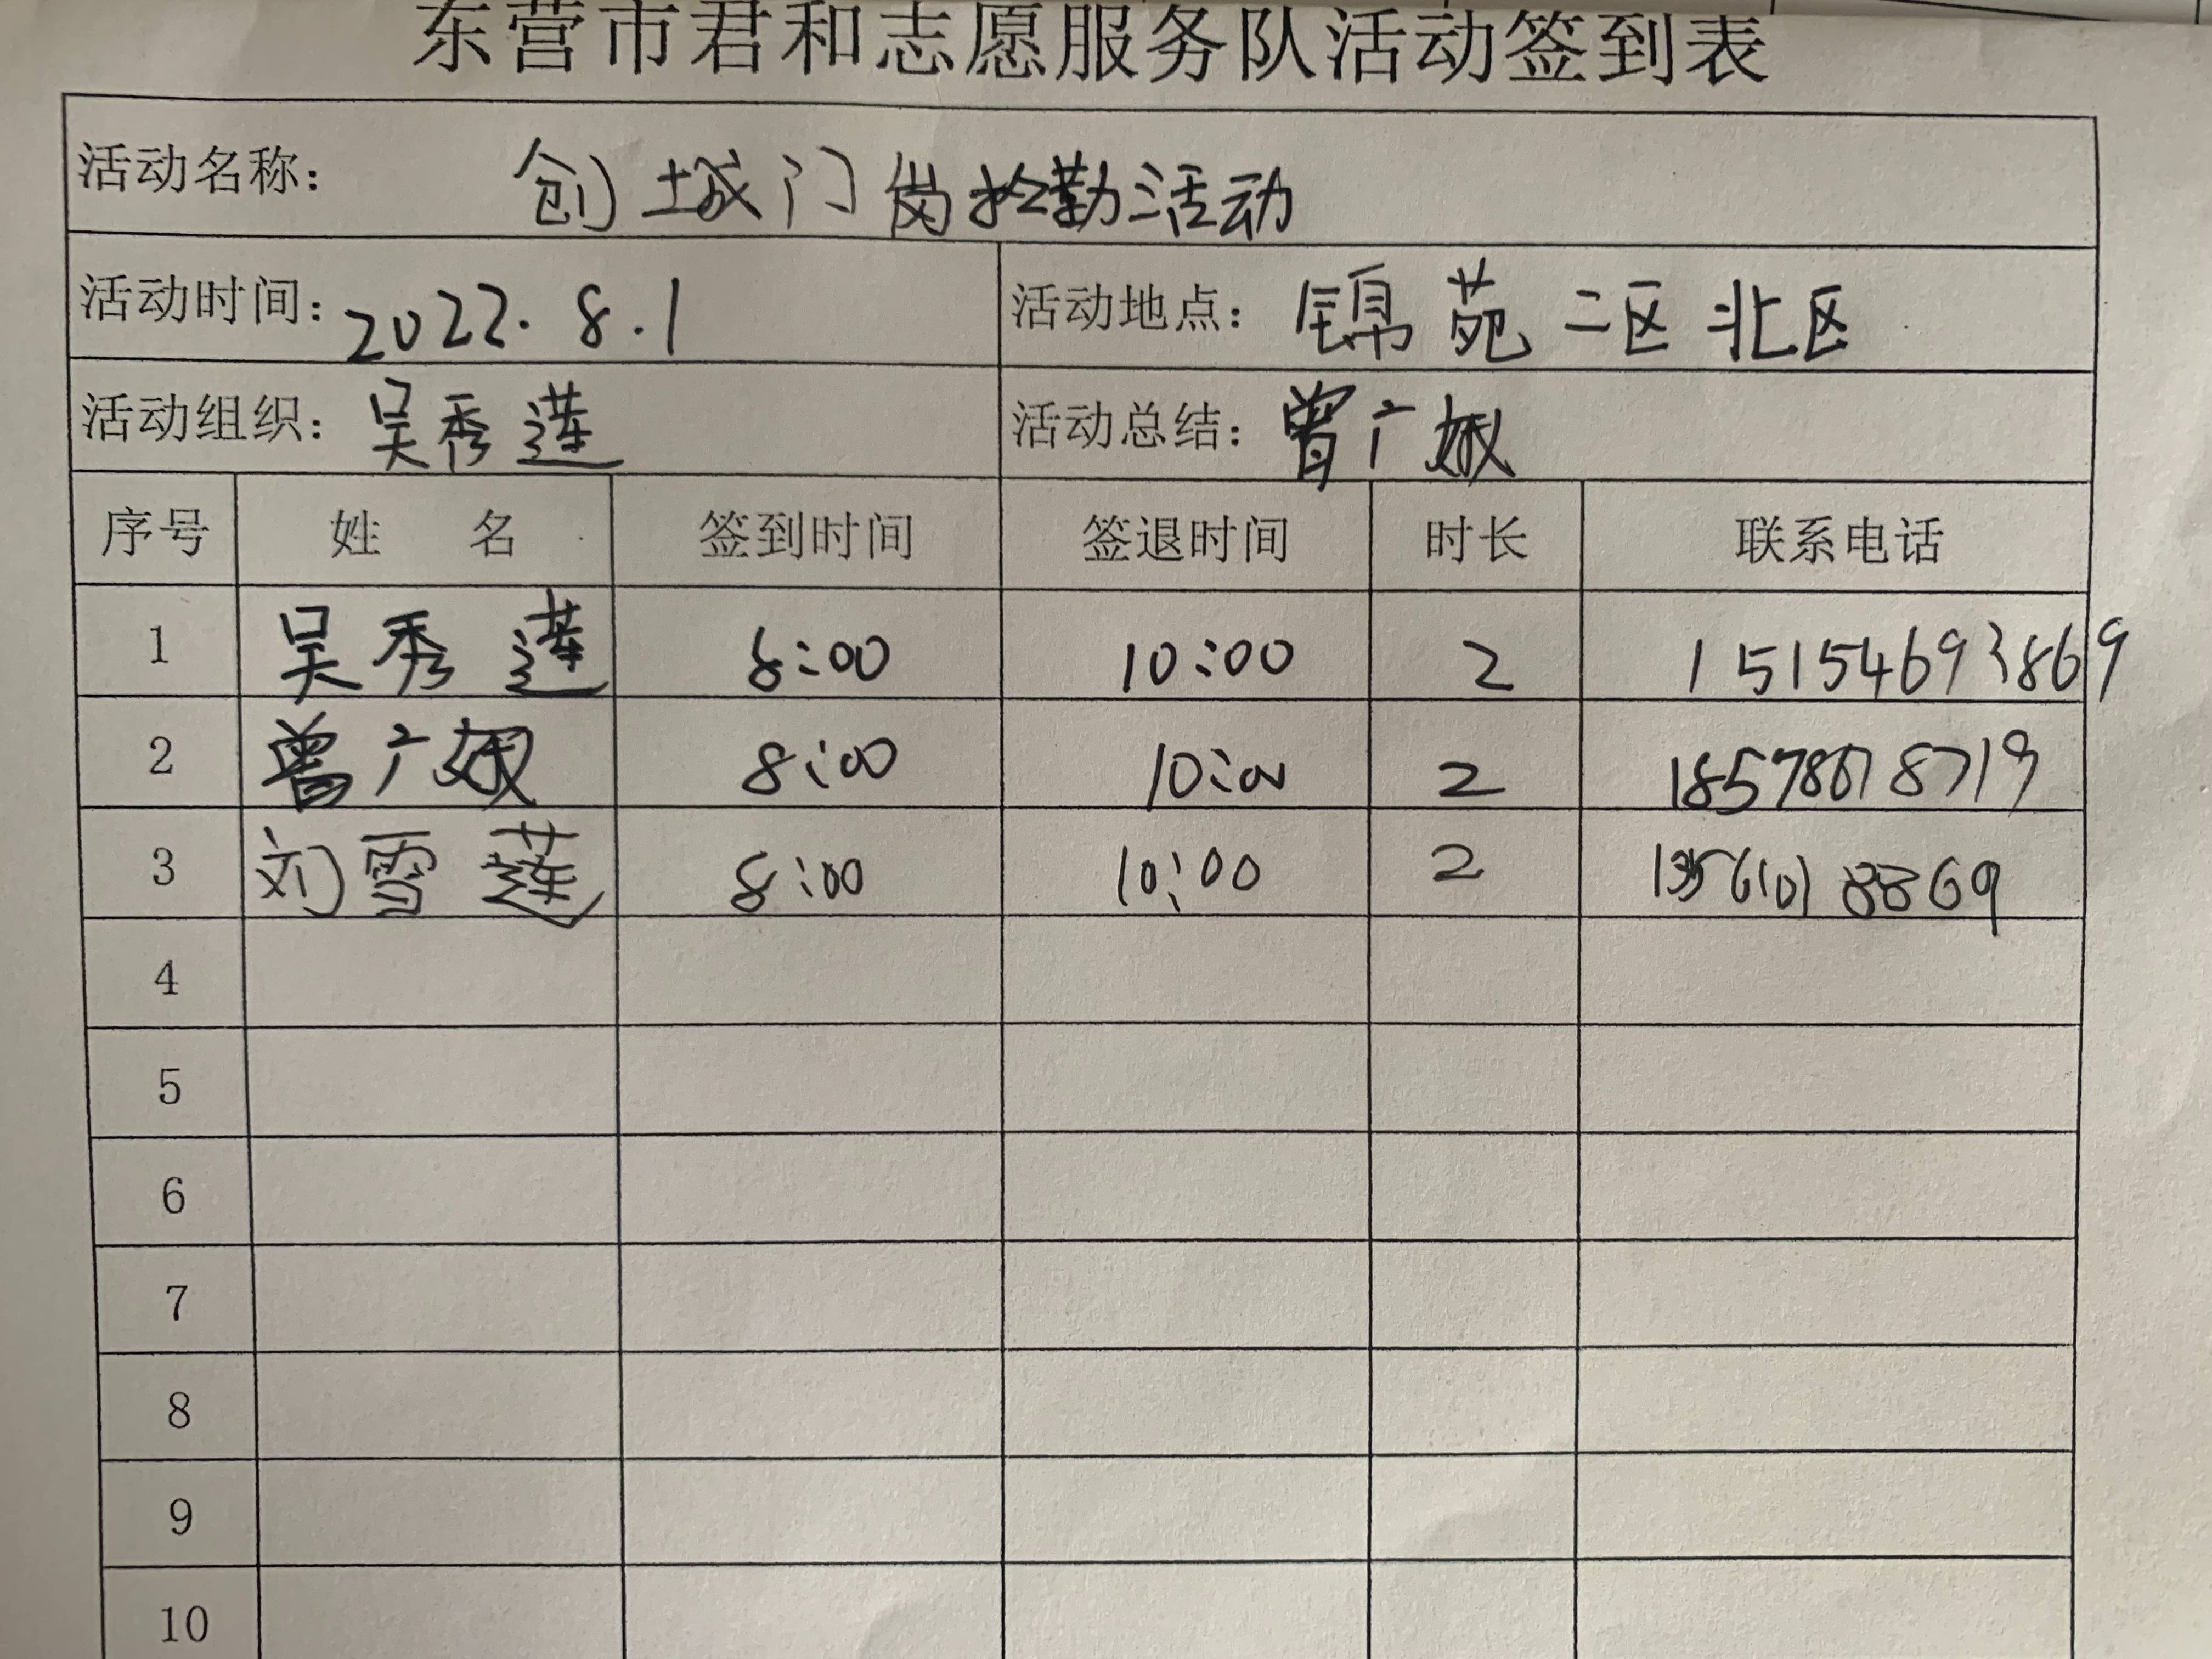 东营市君和志愿服务队活动签到表
活动名称： 创城门岗执勤活动
活动时间：2022.8.1 活动地点：锦苑二区北区
活动组织：吴秀莲 活动总结：曾广
序号 姓 名 签到时间 签退时间 时长 联系电话
1 吴秀莲 8:00 10:00 2 15154693869
2 曾广 8:00 10:00 2
3 刘雪莲 8:00 10:00 2
4
5
6
7
8
9
10